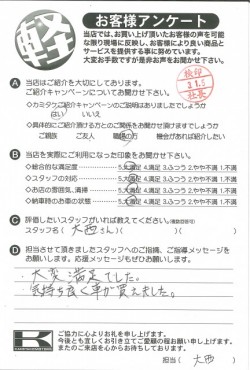 軽
お客様アンケート
当店では、お買い上げ頂いたお客様の声を可能な
限り現場に反映し、お客様により良い商品と
サービスを提供する事に努めています。
大変お手数ですが是非お声をお聞かせ下さい。
A 当店はご紹介を大切にしております。
ご紹介キャンペーンについてお聞かせ下さい。
・カミタケご紹介キャンペーンのご説明はありましたでしょうか
はい いいえ
・具体的にご紹介頂ける方との ご関係をお聞かせ頂けますと可能でしょうか
ご親族 ご友人 職場の方 機会があれば紹介したい
B 当店を実際にご利用になった印象をお聞かせ下さい。
◇総合的な満足度 5.大満足 4.満足 3.ふつう 2.やや不満 1.不満
◇スタッフの対応 5.大満足 4.満足 3.ふつう 2.やや不満 1.不満
◇お店の雰囲気、清掃 5.大満足 4.満足 3.ふつう 2.やや不満 1.不満
◇納車時のお車の状態 5.大満足 4.満足 3.ふつう 2.やや不満 1.不満
C 評価したいスタッフがいれば教えてください。
スタッフ名( 大西さん )( )
D 担当させて頂きましたスタッフへのご指摘、ご指導メッセージを
お願いします。応援メッセージもぜひお願いします。
大変満足でした。
気持ち良く車が買えました。
K
ご協力に心よりお礼を申し上げます。
今後とも宜しくお引き立てご愛顧の程お願い申し上げます。
またのご来店を心からお待ちしております。
担当( 大西 )